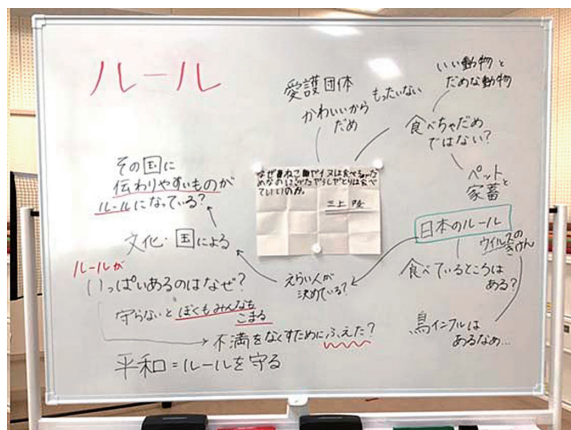 ルール
愛護団体
かわいいから
だめ
もったいない
いい動物と
だめな動物
食べちゃだめ
ではない?
ペットと
家畜
なぜねこやイヌは食べちゃだ
めなのに
ていいのか。
その国に
伝わりやすいものが
ルールになっている?
文化・国による
日本のルール
ウイルスの
きけん
食べているところは
ある?
鳥インフルは
あるなぁ…
えらい人が
決めている?
ルールが
いっぱいあるのはなぜ?
守らないとぼくもみんなも
こまる
不満をなくすためにふえた?
平和=ルールを守る